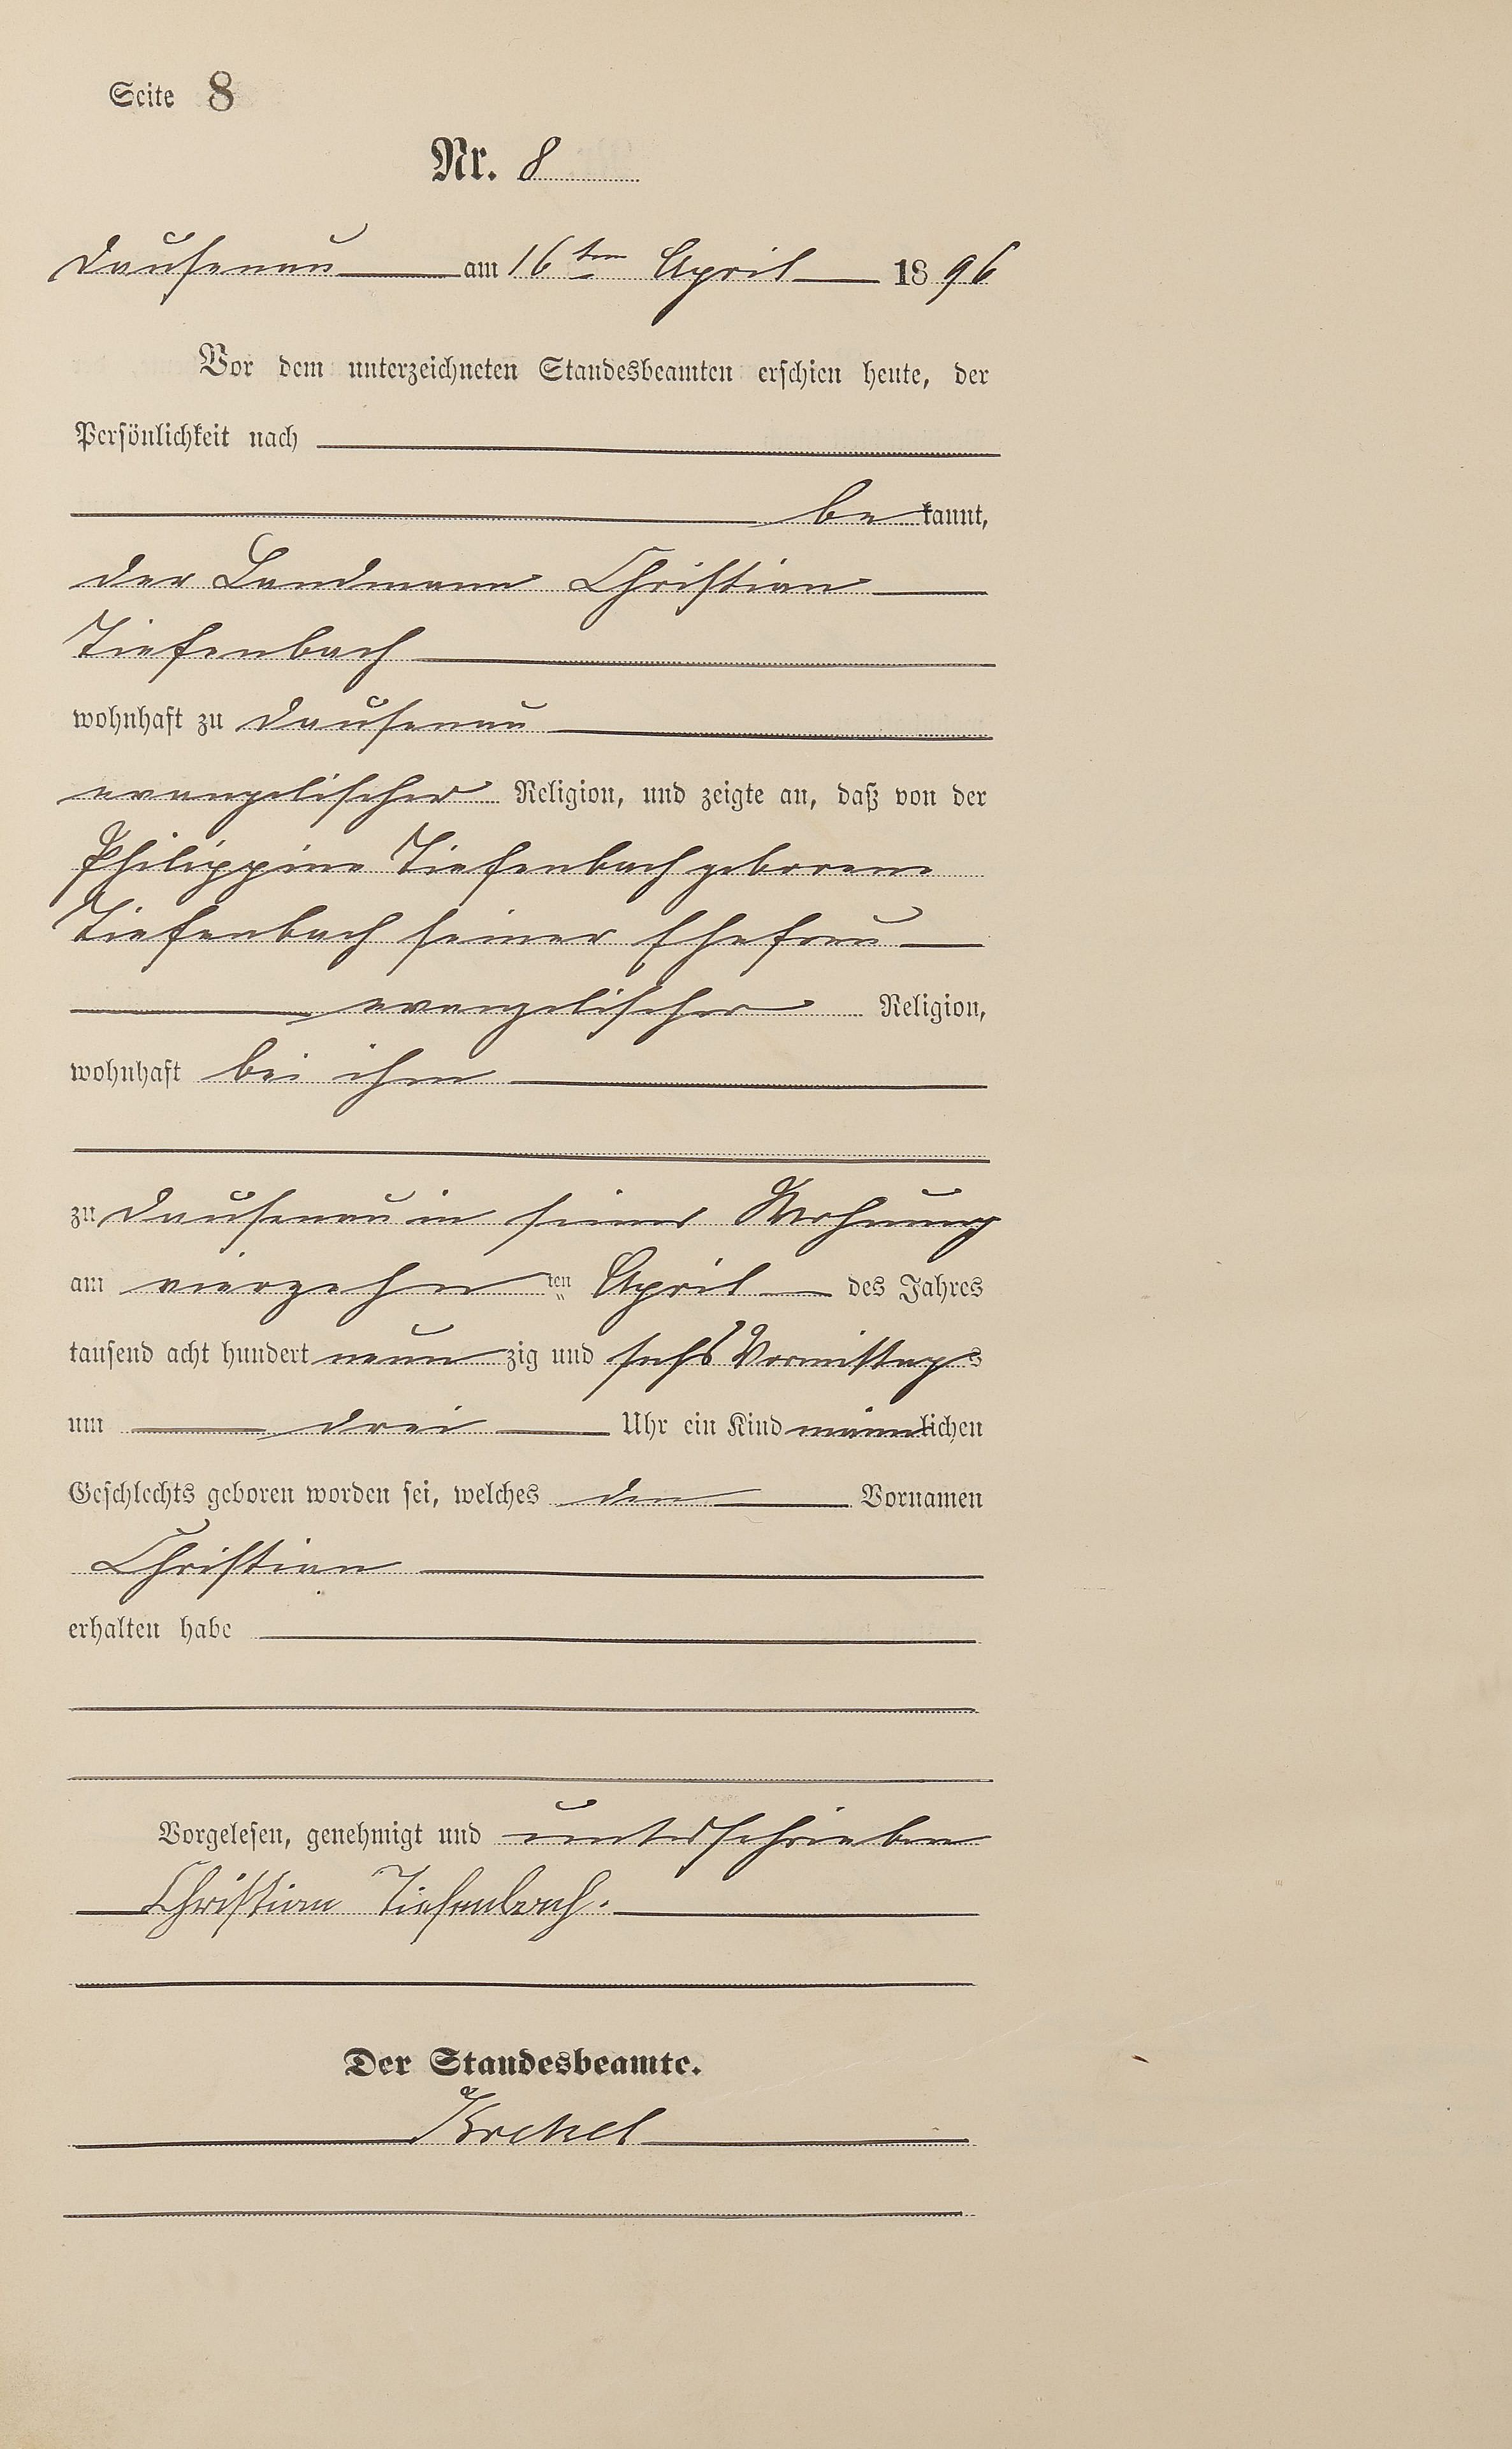 Seite 8
Nr. 8
Dausenau am 16ten April 1896
Vor dem unterzeichneten Standesbeamten erschien heute, der
Persönlichkeit nach
bekannt,
der Landmann Christian
Tiefenbach
wohnhaft zu Dausenau
evangelischer Religion, und zeigte an, daß von der
Philippine Tiefenbach geborene
Tiefenbach seiner Ehefrau
evangelischer Religion,
wohnhaft bei ihm
zu Dausenau in seiner Wohnung
am vierzehnten April des Jahres
tausend acht hundert neunzig und sechs Vormittags
um drei Uhr ein Kind männlichen
Geschlechts geboren worden sei, welches den Vornamen
Christian
erhalten habe
Vorgelesen, genehmigt und unterschrieben
Christian Tiefenbach.
Der Standesbeamte.